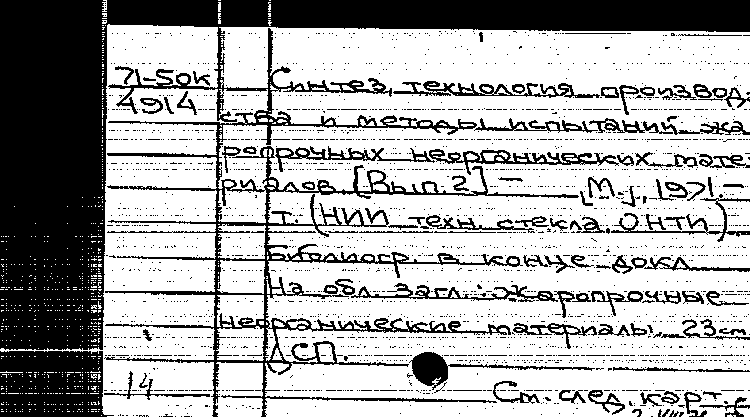 71-50к
4914
Синтез, технология производ-
ства и методы испытаний жа-
ропрочных неорганических мате-
риалов. [Вып. 2]. — [М.], 1971. —
т. (НИИ техн. стекла. ОНТИ)
Библиогр. в конце докл.
На обл. загл.: Жаропрочные
неорганические материалы. 23 cm
ДСП.
14
См. след. карт.